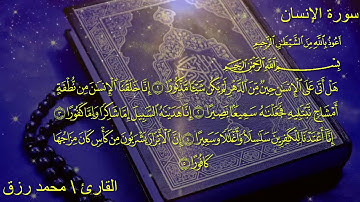 سورة الإنسان
أَعُوذُ بِاللَّهِ مِنَ الشَّيْطَانِ الرَّجِيمِ
بِسْمِ اللَّهِ الرَّحْمَٰنِ الرَّحِيمِ
هَلْ أَتَىٰ عَلَى الْإِنسَٰنِ حِينٌ مِّنَ الدَّهْرِ لَمْ يَكُن شَيْـًٔا مَّذْكُورًا ١ إِنَّا خَلَقْنَا الْإِنسَٰنَ مِن نُّطْفَةٍ
أَمْشَاجٍ نَّبْتَلِيهِ فَجَعَلْنَٰهُ سَمِيعًۢا بَصِيرًا ٢ إِنَّا هَدَيْنَٰهُ السَّبِيلَ إِمَّا شَاكِرًا وَإِمَّا كَفُورًا ٣
إِنَّا أَعْتَدْنَا لِلْكَٰفِرِينَ سَلَٰسِلَا۟ وَأَغْلَٰلًا وَسَعِيرًا ٤ إِنَّ الْأَبْرَارَ يَشْرَبُونَ مِن كَأْسٍ كَانَ مِزَاجُهَا
كَافُورًا ٥
القارئ \ محمد رزق